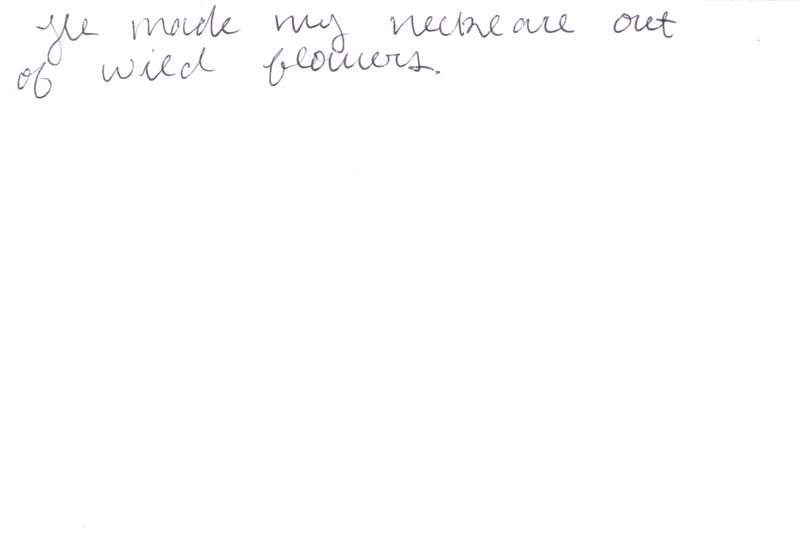 He made my necklace out
of wild flowers.